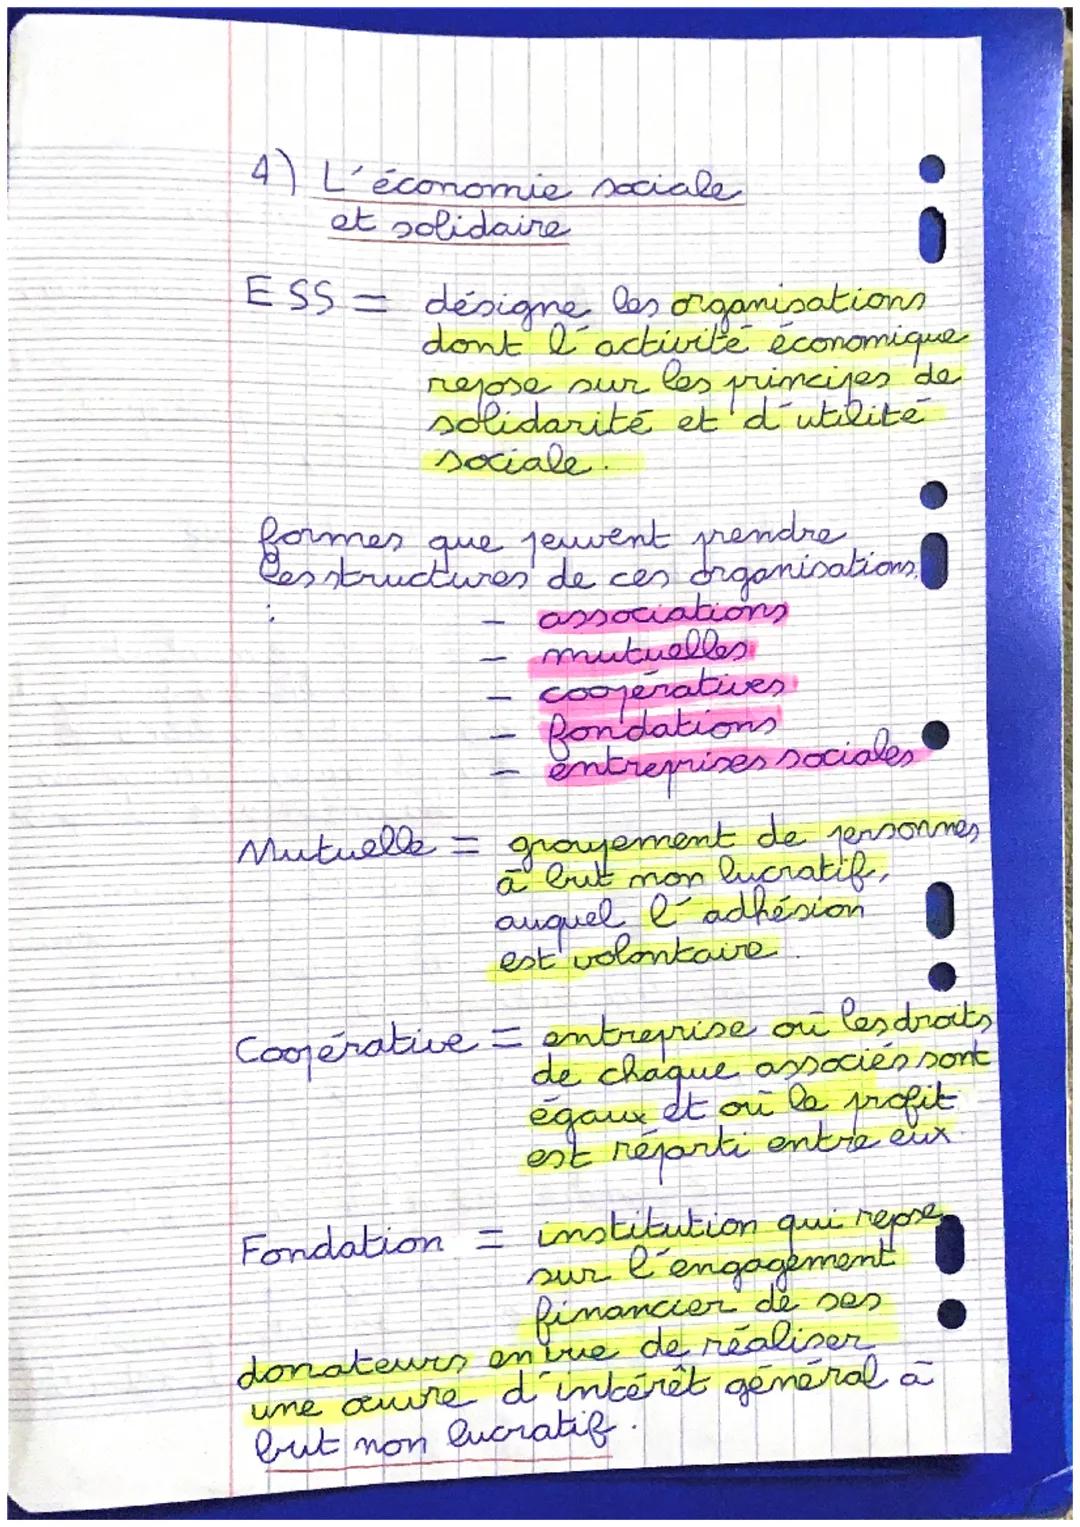 4) L'économie sociale
et solidaire
ESS = désigne les organisations
dont l'activité économique
repose sur les principes de
solidarité et d'utilité
sociale.
formes que peuvent prendre
les structures de ces organisations
:
- associations
- mutuelles
- coopératives
- fondations
- entreprises sociales
Mutuelle = groupement de personnes
à but non lucratif,
auquel l'adhésion
est volontaire.
Coopérative = entreprise où les droits
de chaque associés sont
égaux et où le profit
est réparti entre eux
Fondation = institution qui repose
sur l'engagement
financier de ses
donateurs en vue de réaliser
une œuvre d'intérêt général à
but non lucratif.